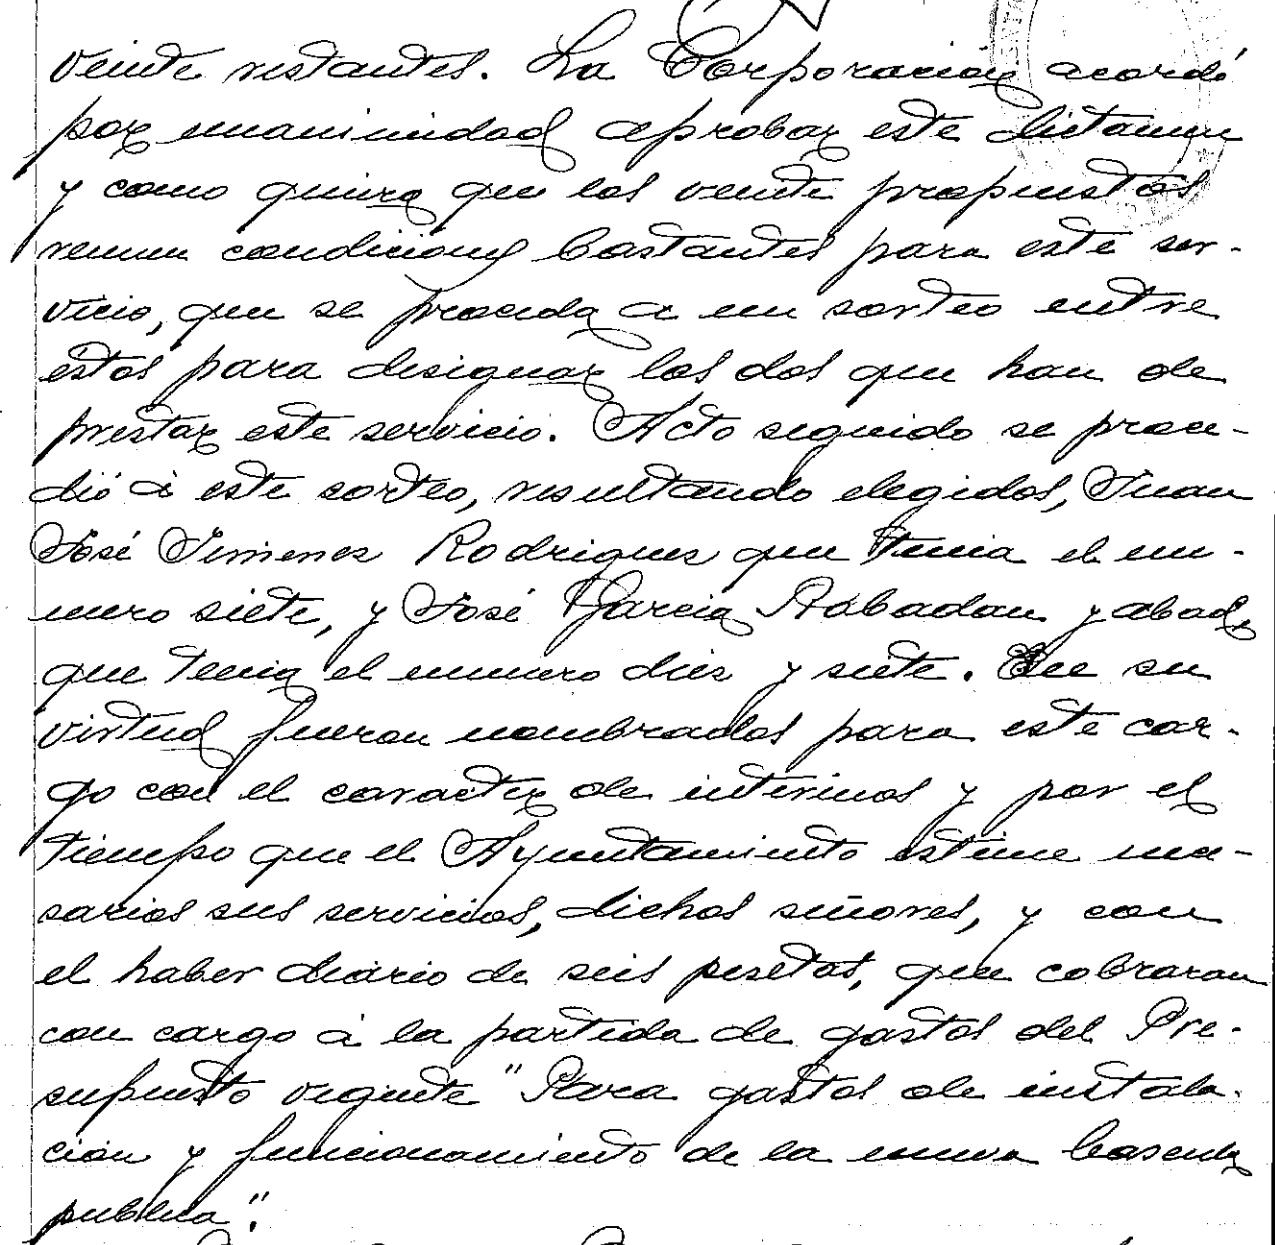 veinte restantes. La Corporación acordó
por unanimidad aprobar este dictamen
y como quiera que los veinte propuestos
reunen condiciones bastantes para este ser-
vicio, que se proceda a un sorteo entre
estos para designar los dos que han de
prestar este servicio. Acto seguido se proce-
dió á este sorteo, resultando elegidos, Juan
José Jimenez Rodriguez que tenia el nu-
mero siete, y José Garcia Rabadan y abad,
que tenia el numero diez y siete. En su
virtud fueron nombrados para este car-
go con el caracter de interinos y por el
tiempo que el Ayuntamiento estime nece-
sarios sus servicios, dichos señores, y con
el haber diário de seis pesetas, que cobraran
con cargo á la partida de gastos del Pre-
supuesto vigente "Para gastos de instala-
cion y funcionamiento de la nueva
publica".